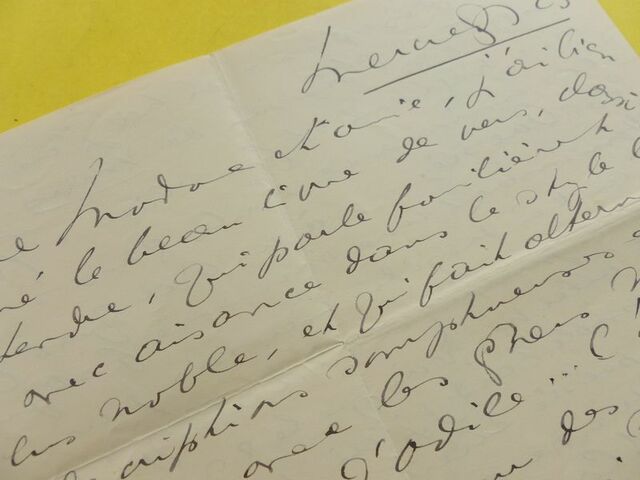 Mercredi 23
Madame et amie, j'ai bien
le beau livre de vers, classi
tendre, qui parle familièrement
avec aisance dans le style l
plus noble, et qui fait altern
descriptions somptueuses
avec les plus
d'Odile... C'
des